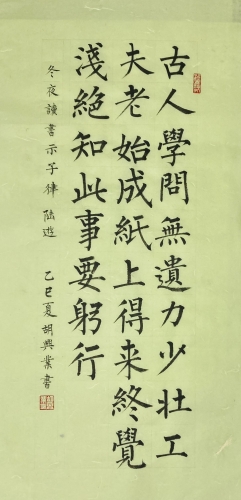 古人學問無遺力少壯工
夫老始成紙上得来終覺
淺絕知此事要躬行
冬夜讀書示子律 陆遊 乙巳夏 胡興業書